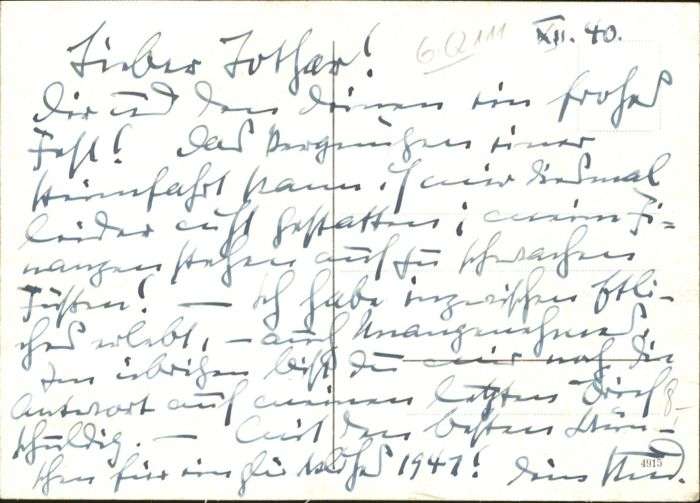 XII. 40.
Lieber Lothar!
Dir und den deinen ein frohes
Fest! Das Vergnügen einer
Heimfahrt kann ich mir diesmal
leider nicht gestatten; meine Fi-
nanzen stehen auf zu schwachen
Füssen! — Ich habe inzwischen Etli-
ches erlebt, – auch Unangenehmes.
Im übrigen bist Du mir noch die
Antwort auf meinen letzten Brief
schuldig. — Mit den besten Wün-
schen für ein glückliches 1941! Dein
4915